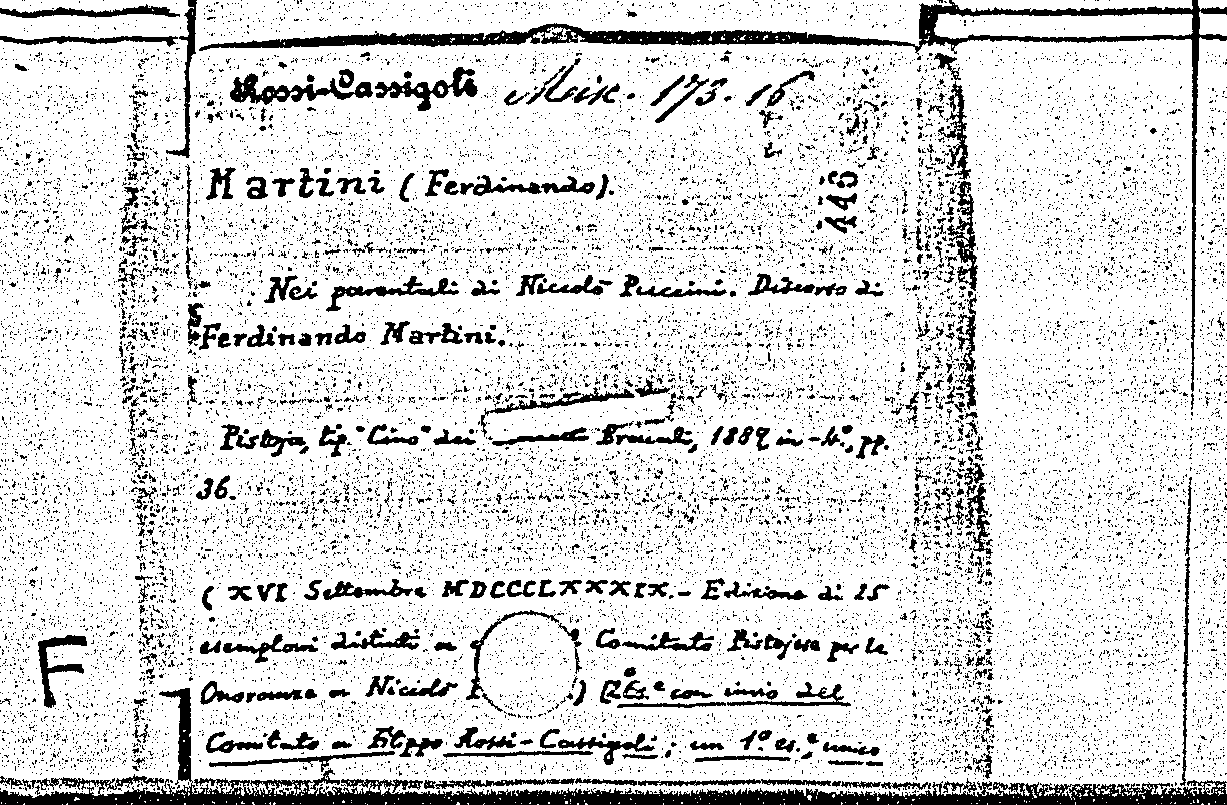 Rossi-Cassigoli Misc. 173.16
Martini (Ferdinando).
446
Nei parentali di Niccolò Puccini. Discorso di
Ferdinando Martini.
Pistoja, tip. "Cino" dei Bracali, 1889 in-4º, pp.
36.
( XVI Settembre MDCCCLXXXIX.- Edizione di 25
esemplari distinti a Comitato Pistojese per le
Onoranze a Niccolò ) (2º Es.e con invio del
Comitato a Filippo Rossi-Cassigoli; un 1º es.e, unico
F